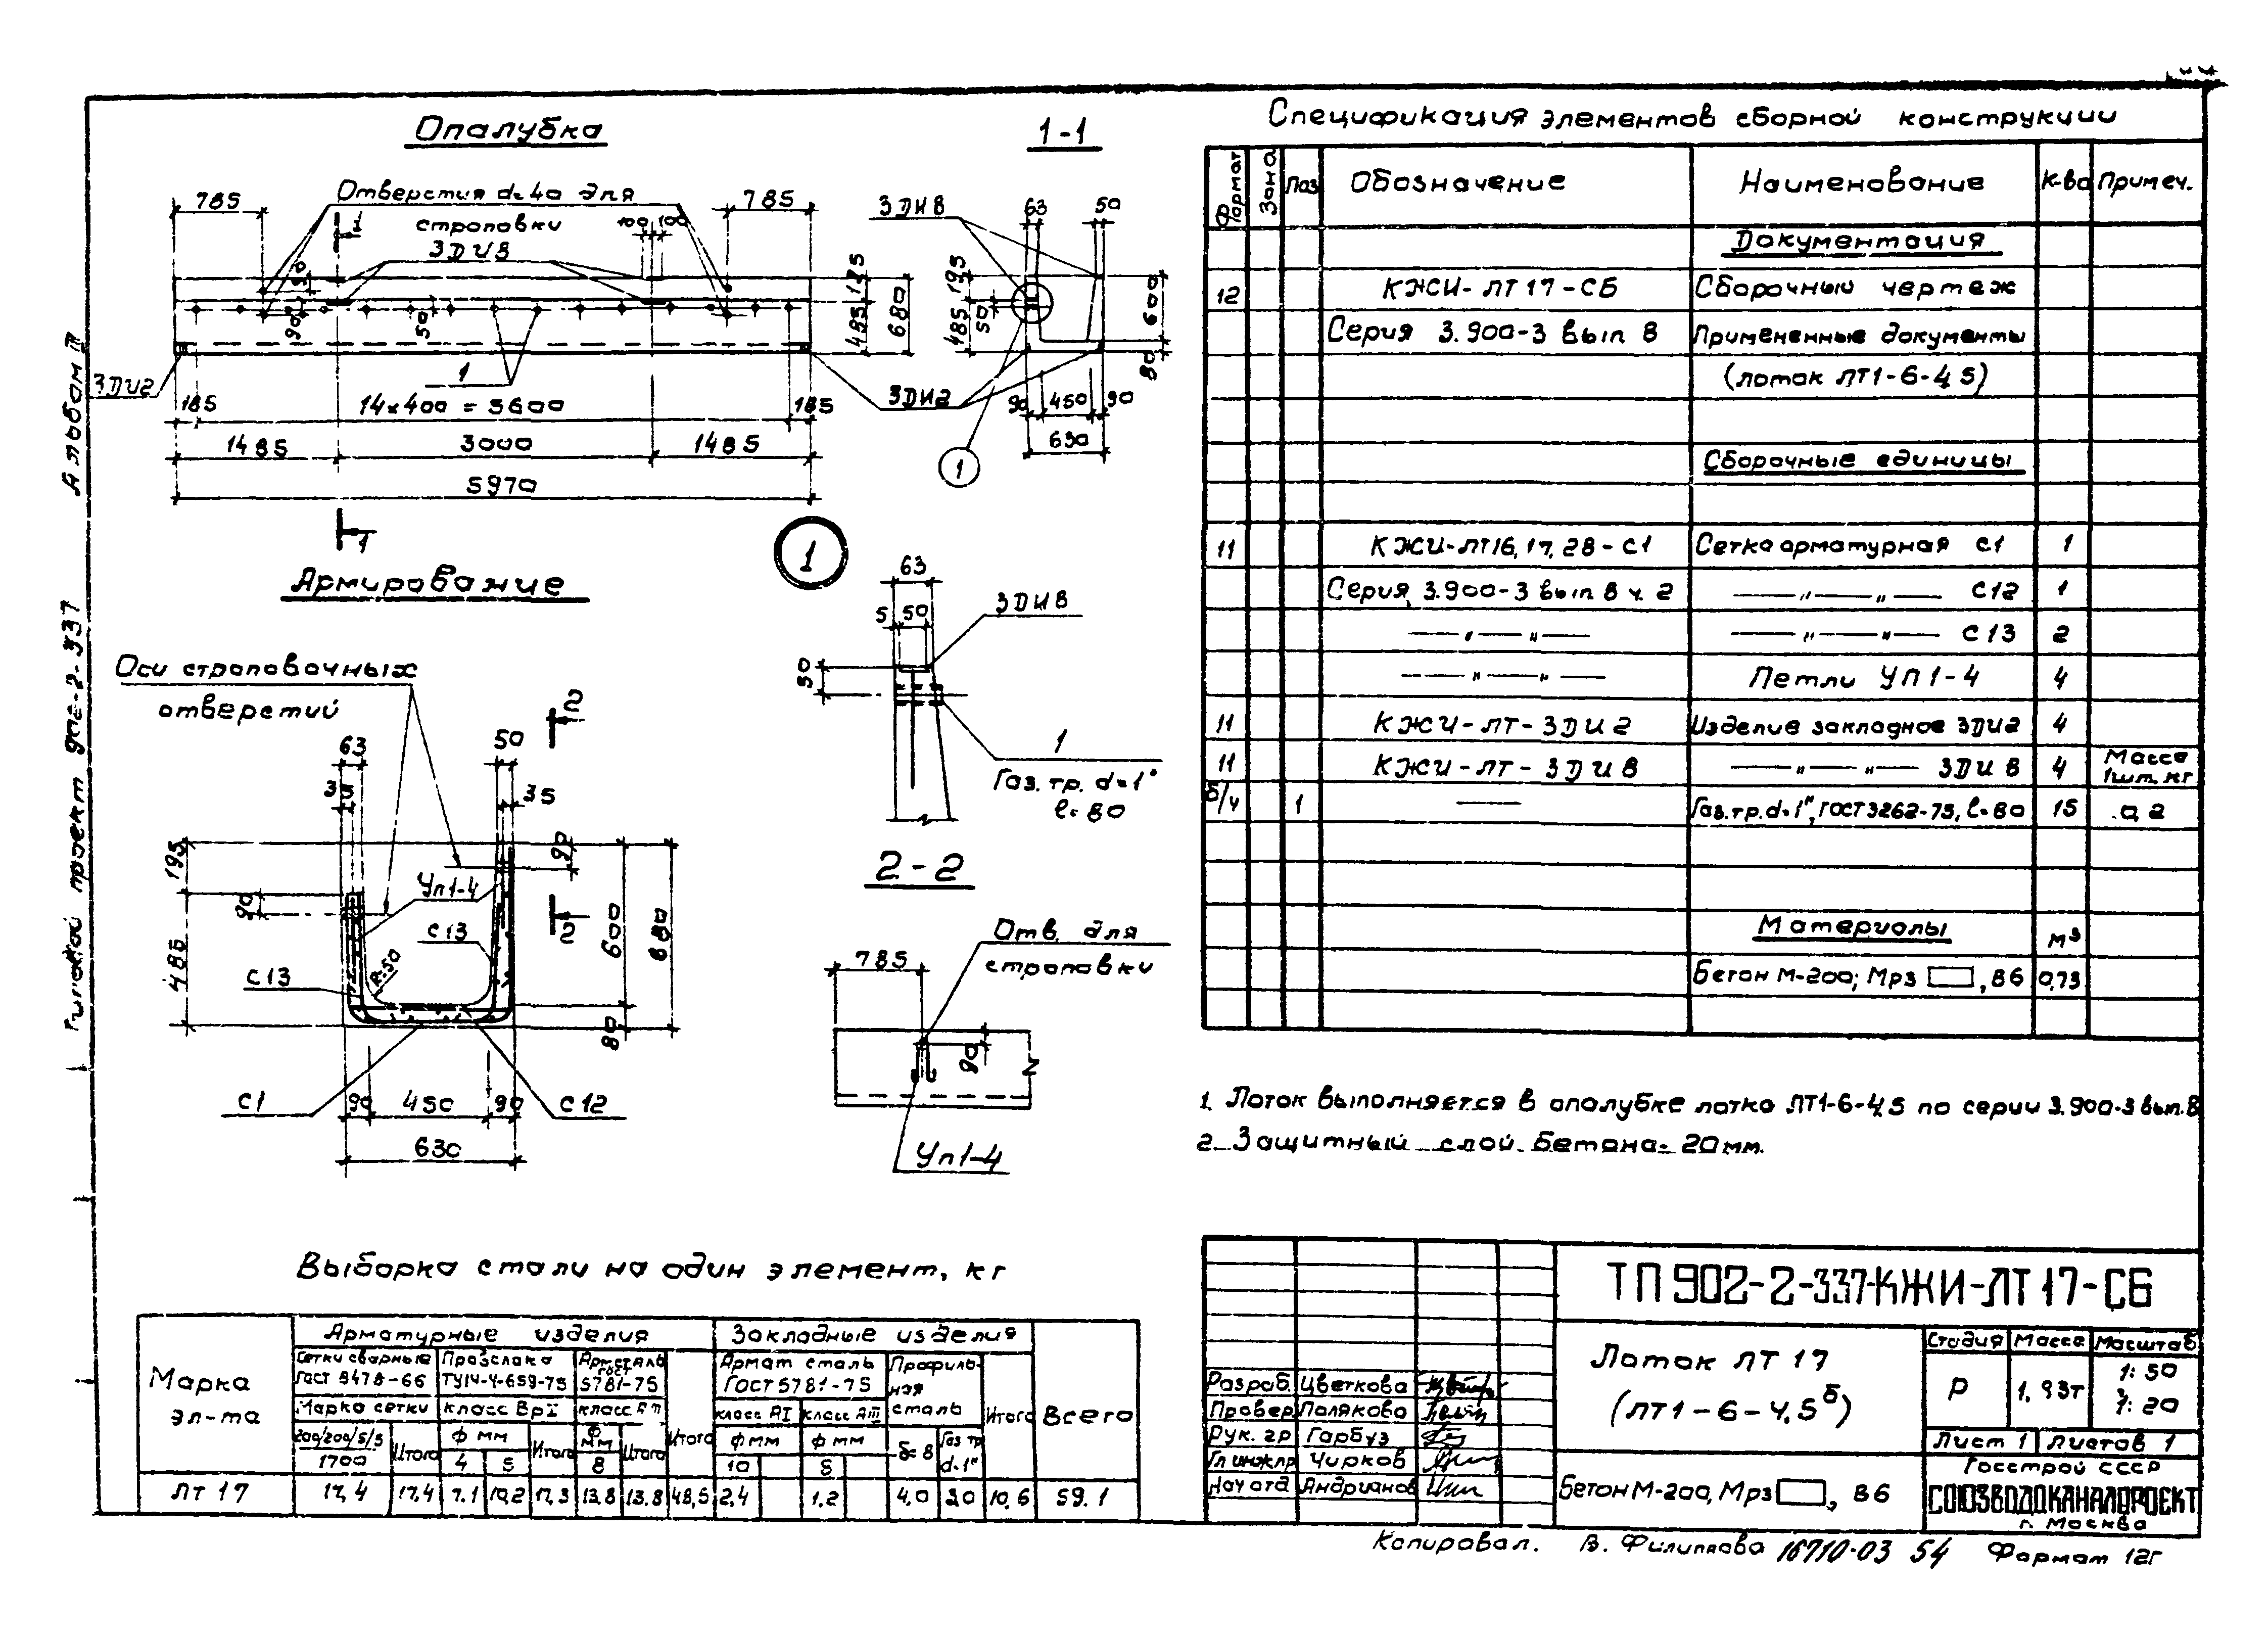 Опалубка
785
Отверстия d=40 для
строповки
785
100 100
ЗДИ8
50
90
50
195
485
680
ЗДИ2
1
185
14×400 = 5600
185
1485
3000
1485
5970
1
1
1-1
ЗДИ8
63
50
195
485
50
600
80
ЗДИ2
90 450 90
630
1
Армирование
Оси строповочных
отверстий
63
50
35
35
2
2
195
90
485
90
600
680
80
Уп1-4
С13
С13
R=50
С1
90 450 90
С12
630
1
63
5 50
ЗДИ8
50
1
Газ. тр. d=1"
ℓ=80
2-2
Отв. для
строповки
785
90
Уп1-4
Спецификация элементов сборной конструкции
Формат Зона Поз Обозначение Наименование К-во Примеч.
Документация
12 КЖИ-ЛТ17-СБ Сборочный чертеж
Серия 3.900-3 вып 8 Примененные документы
(лоток ЛТ1-6-4,5)
Сборочные единицы
11 КЖИ-ЛТ16,17,28-С1 Сетка арматурная С1 1
Серия 3.900-3 вып 8 ч. 2 —"—"— С12 1
—"—"— —"—"— С13 2
—"—"— Петли УП1-4 4
11 КЖИ-ЛТ-ЗДИ2 Изделие закладное ЗДИ2 4
11 КЖИ-ЛТ-ЗДИ8 —"—"— ЗДИ8 4 Масса 1шт. кг
б/ч 1 — Газ.тр. d=1", ГОСТ 3262-75, ℓ=80 15 0,2
Материалы м³
Бетон М-200; Мрз , В6 0,73
1. Лоток выполняется в опалубке лотка ЛТ1-6-4,5 по серии 3.900-3 вып. 8
2. Защитный слой бетона - 20мм.
Выборка стали на один элемент, кг
Марка эл-та
Арматурные изделия Закладные изделия Всего
Сетки сварные ГОСТ 8478-66 Проволока ТУ14-4-659-75 Арм. сталь ГОСТ 5781-75 Итого Армат сталь ГОСТ 5781-75 Профильная сталь Итого
Марка сетки класс ВрI класс АIII класс АI класс АIII
200/200/5/5 1700 Итого ф мм 4 5 Итого ф мм 8 Итого ф мм 10 ф мм 8 δ=8 Газ тр d=1"
ЛТ 17 17,4 17,4 7.1 10,2 17,3 13,8 13,8 48,5 2,4 1,2 4,0 3,0 10,6 59.1
ТП 902-2-337-КЖИ-ЛТ17-СБ
Лоток ЛТ 17
(ЛТ1-6-4,5б)
Стадия Масса Масштаб
Р 1,83т 1:50
1:20
Лист 1 Листов 1
Бетон М-200, Мрз , В6
Госстрой СССР
СОЮЗВОДОКАНАЛПРОЕКТ
г. Москва
Разраб. Цветкова
Провер Полякова
Рук. гр Гарбуз
Гл инж пр Чирков
Нач отд Андрианов
Копировал. В. Филиппова 16710-03 54 Формат 12г
Типовой проект 902-2-337 Альбом III